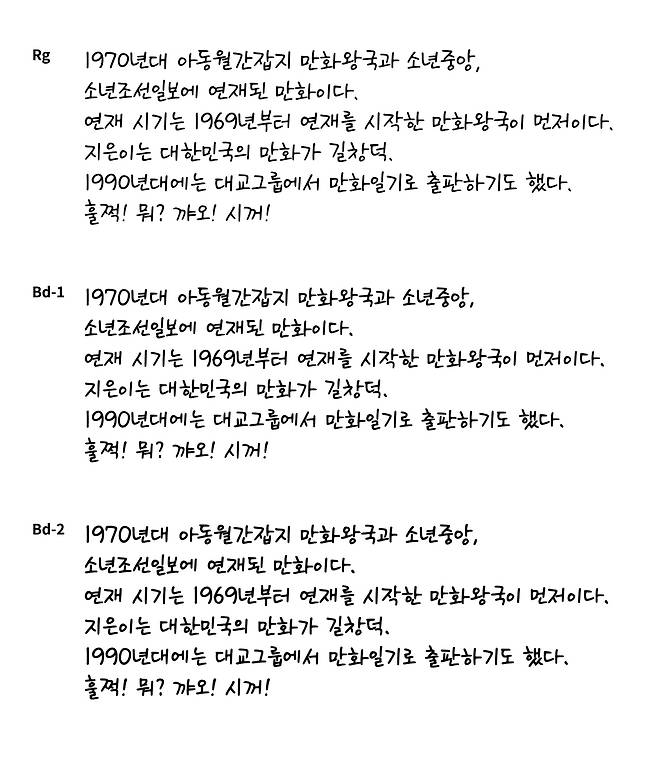 Rg 1970년대 아동월간잡지 만화왕국과 소년중앙,
소년조선일보에 연재된 만화이다.
연재 시기는 1969년부터 연재를 시작한 만화왕국이 먼저이다.
지은이는 대한민국의 만화가 길창덕.
1990년대에는 대교그룹에서 만화일기로 출판하기도 했다.
훌쩍! 뭐? 꺄오! 시꺼!
Bd-1 1970년대 아동월간잡지 만화왕국과 소년중앙,
소년조선일보에 연재된 만화이다.
연재 시기는 1969년부터 연재를 시작한 만화왕국이 먼저이다.
지은이는 대한민국의 만화가 길창덕.
1990년대에는 대교그룹에서 만화일기로 출판하기도 했다.
훌쩍! 뭐? 꺄오! 시꺼!
Bd-2 1970년대 아동월간잡지 만화왕국과 소년중앙,
소년조선일보에 연재된 만화이다.
연재 시기는 1969년부터 연재를 시작한 만화왕국이 먼저이다.
지은이는 대한민국의 만화가 길창덕.
1990년대에는 대교그룹에서 만화일기로 출판하기도 했다.
훌쩍! 뭐? 꺄오! 시꺼!